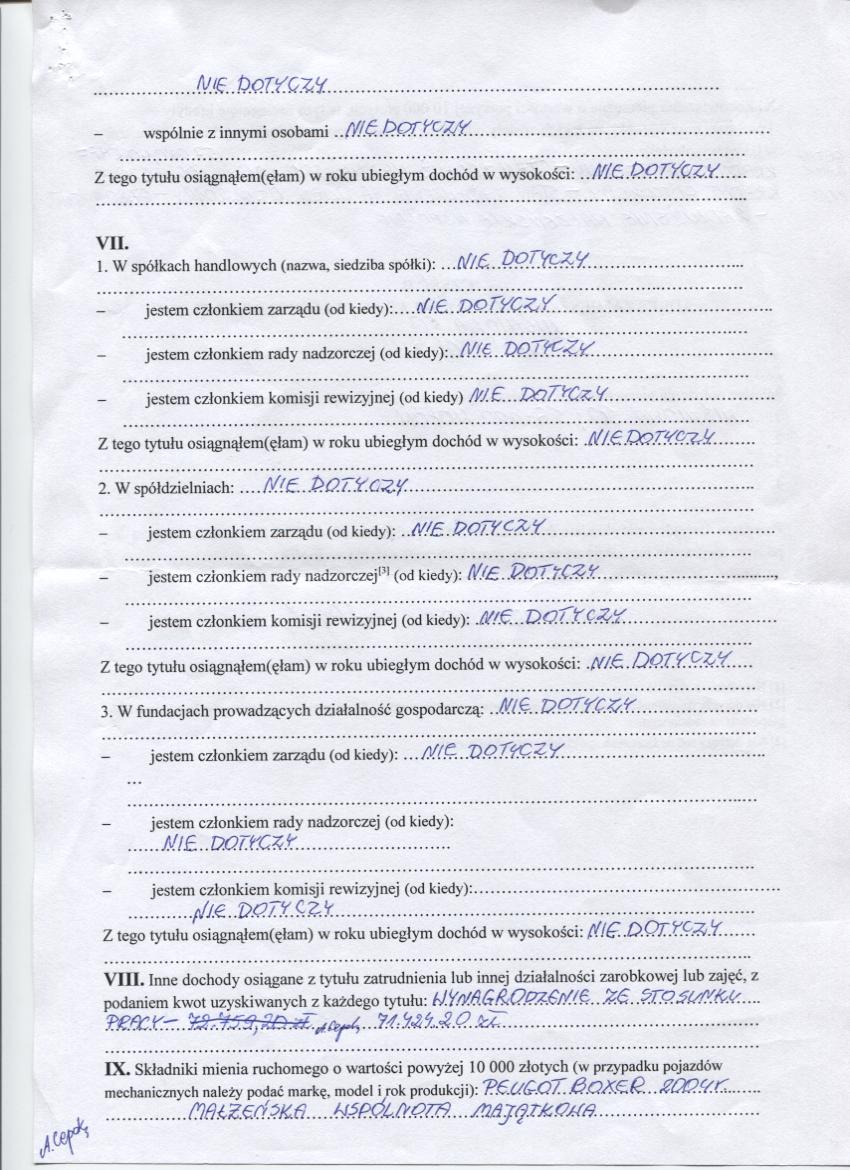 NIE DOTYCZY
– wspólnie z innymi osobami ..NIE DOTYCZY
Z tego tytułu osiągnąłem(ęłam) w roku ubiegłym dochód w wysokości: ..NIE DOTYCZY
VII.
1. W spółkach handlowych (nazwa, siedziba spółki): ...NIE DOTYCZY
– jestem członkiem zarządu (od kiedy):....NIE DOTYCZY
– jestem członkiem rady nadzorczej (od kiedy):..NIE DOTYCZY
– jestem członkiem komisji rewizyjnej (od kiedy) NIE DOTYCZY
Z tego tytułu osiągnąłem(ęłam) w roku ubiegłym dochód w wysokości: .NIE DOTYCZY
2. W spółdzielniach: ....NIE DOTYCZY
– jestem członkiem zarządu (od kiedy): ..NIE DOTYCZY
– jestem członkiem rady nadzorczej[3] (od kiedy): NIE DOTYCZY
– jestem członkiem komisji rewizyjnej (od kiedy): .NIE DOTYCZY
Z tego tytułu osiągnąłem(ęłam) w roku ubiegłym dochód w wysokości: .NIE DOTYCZY
3. W fundacjach prowadzących działalność gospodarczą: ..NIE DOTYCZY
– jestem członkiem zarządu (od kiedy): ...NIE DOTYCZY
...
– jestem członkiem rady nadzorczej (od kiedy):
NIE DOTYCZY
– jestem członkiem komisji rewizyjnej (od kiedy):
NIE DOTYCZY
Z tego tytułu osiągnąłem(ęłam) w roku ubiegłym dochód w wysokości: NIE DOTYCZY
VIII. Inne dochody osiągane z tytułu zatrudnienia lub innej działalności zarobkowej lub zajęć, z
podaniem kwot uzyskiwanych z każdego tytułu: WYNAGRODZENIE ZE STOSUNKU
PRACY – 72.759,20 zł 71.424.20 zł
IX. Składniki mienia ruchomego o wartości powyżej 10 000 złotych (w przypadku pojazdów
mechanicznych należy podać markę, model i rok produkcji): PEUGOT BOXER 2004r.
MAŁŻEŃSKA WSPÓLNOTA MAJĄTKOWA